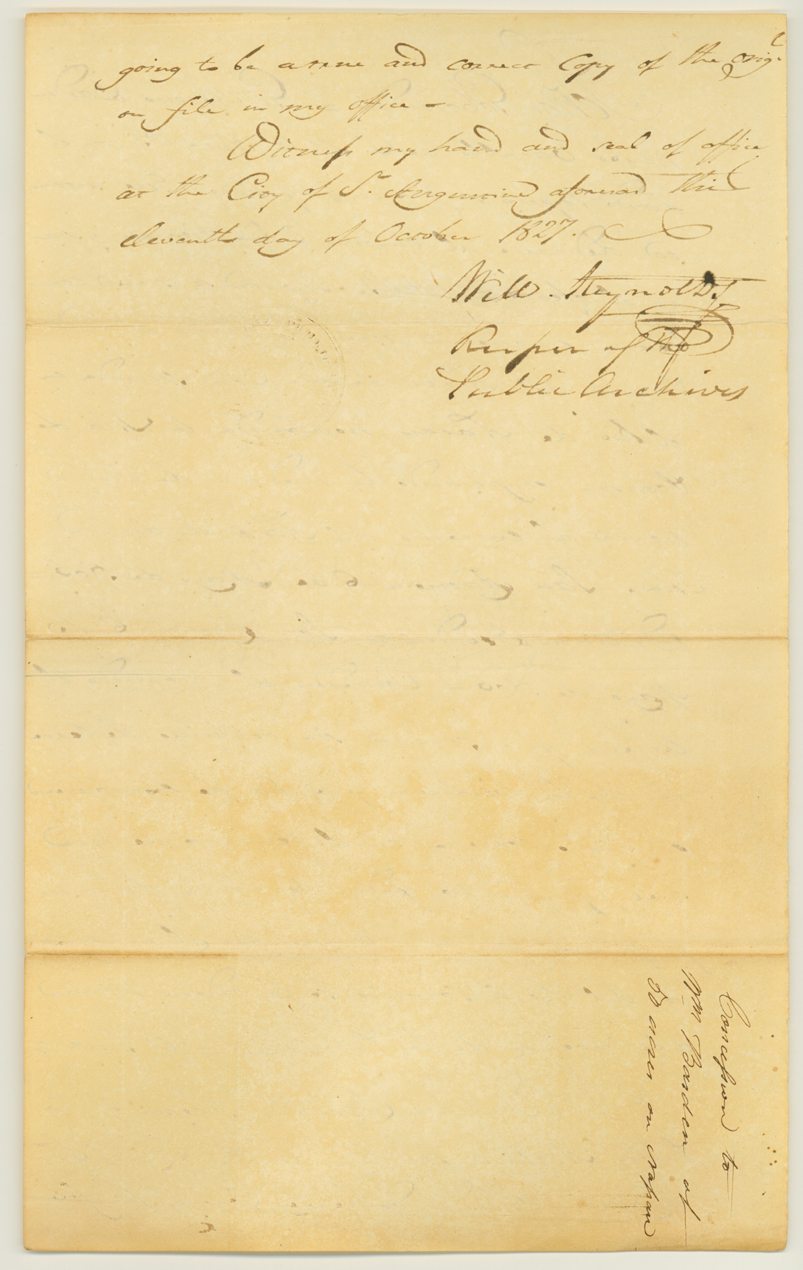 going to be a true and correct Copy of the orig.l
on file in my office -
Witness my hand and seal of office
at the City of St. Augustine aforesaid this
eleventh day of October 1827.
Will. Reynolds
Keeper of the
Public Archives
Concession to
Wm Barden of
acres on